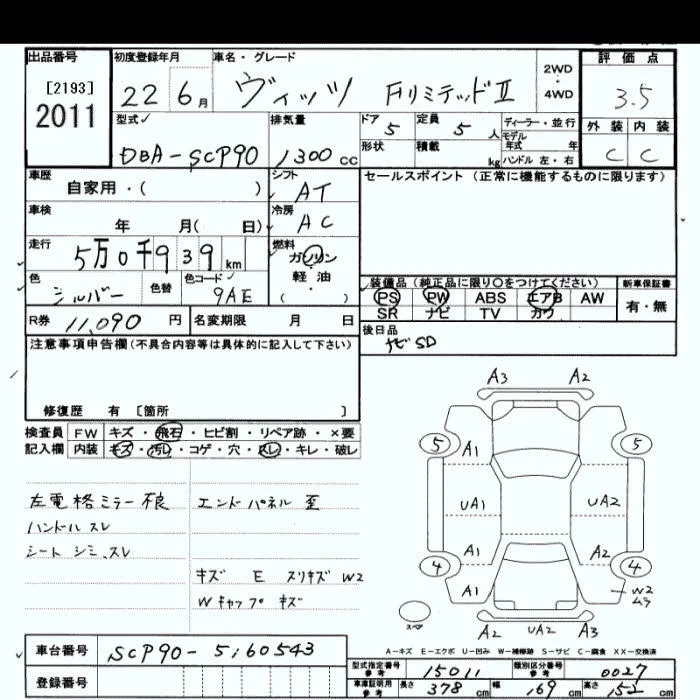 出品番号 初度登録年月 車名・グレード 2WD 評価点
[2193] 22 6月 ヴィッツ Fリミテッド II ・ 3.5
2011 4WD 外装 内装
型式 排気量 ドア 定員 ディーラー・並行 C C
DBA-SCP90 1300cc 5 5人 モデル年式 年
形状 積載 kg ハンドル 左・右
車歴 シフト セールスポイント (正常に機能するものに限ります)
自家用・( ) AT
車検 冷房
年 月( 日) AC
走行 燃料
5万0千939km ガソリン
色 色替 色コード 軽・油 装備品 (純正品に限り○をつけてください) 新車保証書
シルバー 9AE ( ) PS PW ABS エアB AW 有・無
R券 11,090 円 名変期限 月 日 SR ナビ TV カワ
注意事項申告欄(不具合内容等は具体的に記入して下さい) 後日品
ナビSD
修復歴 有 [箇所 ]
検査員 FW キズ・飛石・ヒビ割・リペア跡・×要
記入欄 内装 キズ・汚レ・コゲ・穴・スレ・キレ・破レ
A3 A2
5 A1 5
左電格ミラー不良 エンドパネル 歪
UA1 UA2
ハンドル スレ
シート シミ、スレ
A1 A2
キズ E スリキズ W2
4 4
Wキャップ キズ
A1 W2 ムラ
スペア A2 UA2 A3
A-キズ E-エクボ U-凹み W-補修跡 S-サビ C-腐食 XX-交換済
車台番号 SCP90-5160543
登録番号
型式指定番号 参考 15011 類別区分番号 参考 0027
車庫証明用 参考 長さ 378cm 幅 169cm 高さ 152cm